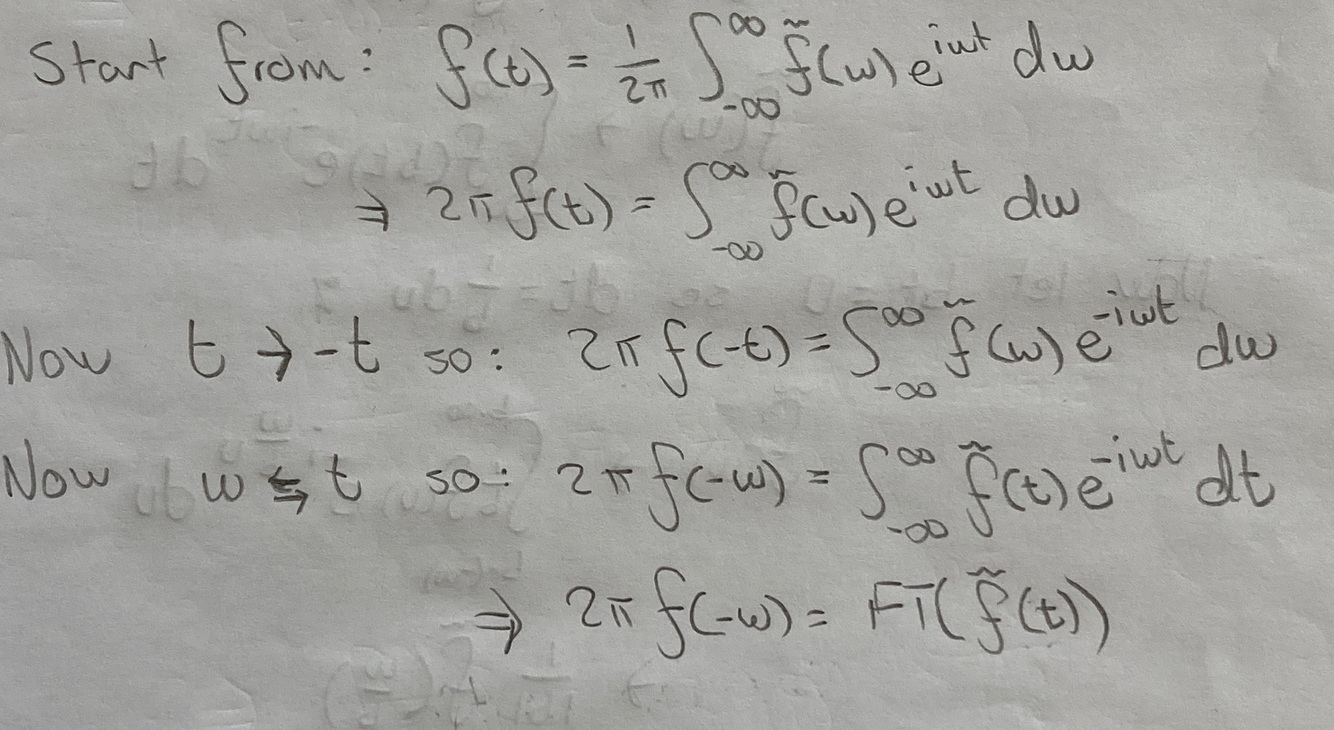 Start from: f(t) = 1/2π ∫_{-∞}^{∞} f̃(ω) e^{iωt} dω
⇒ 2π f(t) = ∫_{-∞}^{∞} f̃(ω) e^{iωt} dω
Now t → -t so: 2π f(-t) = ∫_{-∞}^{∞} f̃(ω) e^{-iωt} dω
Now ω ⇆ t so: 2π f(-ω) = ∫_{-∞}^{∞} f̃(t) e^{-iωt} dt
⇒ 2π f(-ω) = FT(f̃(t))